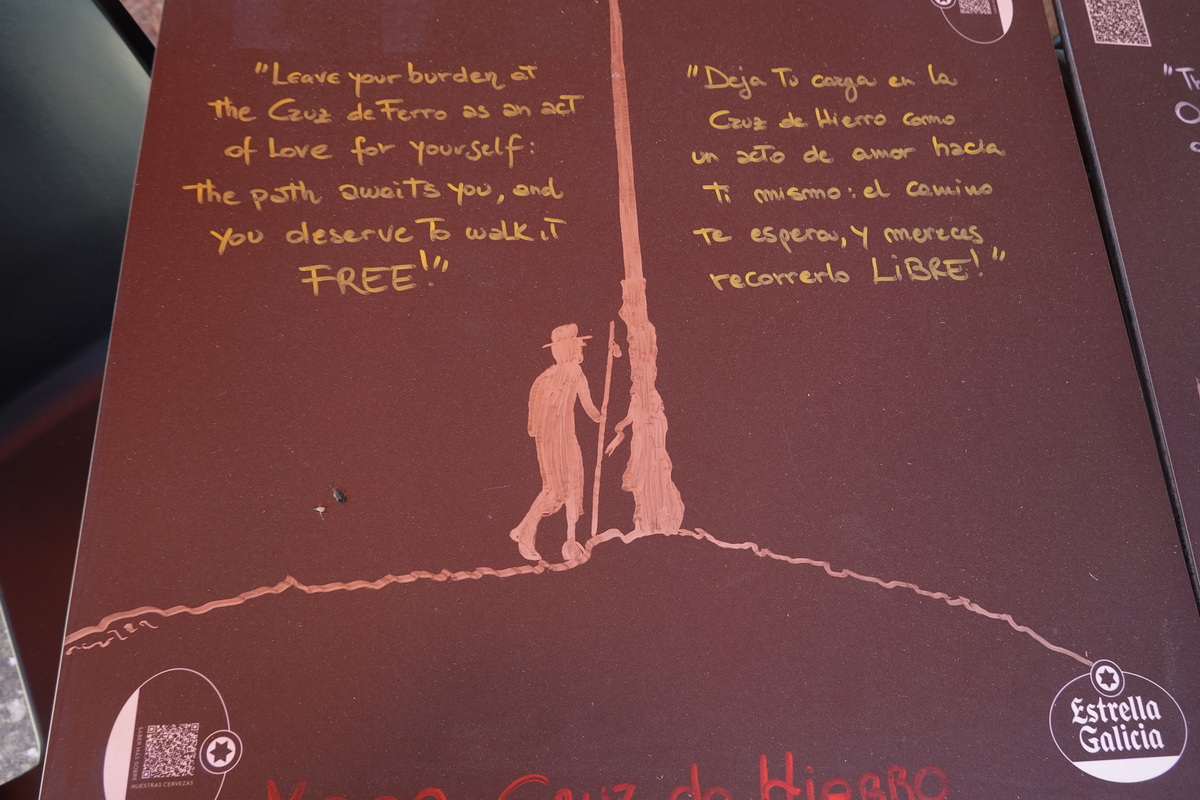 "Leave your burden at
the Cruz de Ferro as an act
of Love for yourself:
The path awaits you, and
you deserve to walk it
FREE!"
"Deja Tu carga en la
Cruz de Hierro como
un acto de amor hacia
Ti mismo: el camino
te espera, y mereces
recorrerlo LiBRE!"
SABER MÁS SOBRE
NUESTRAS CERVEZAS
Estrella
Galicia
Cruz de HiERRO